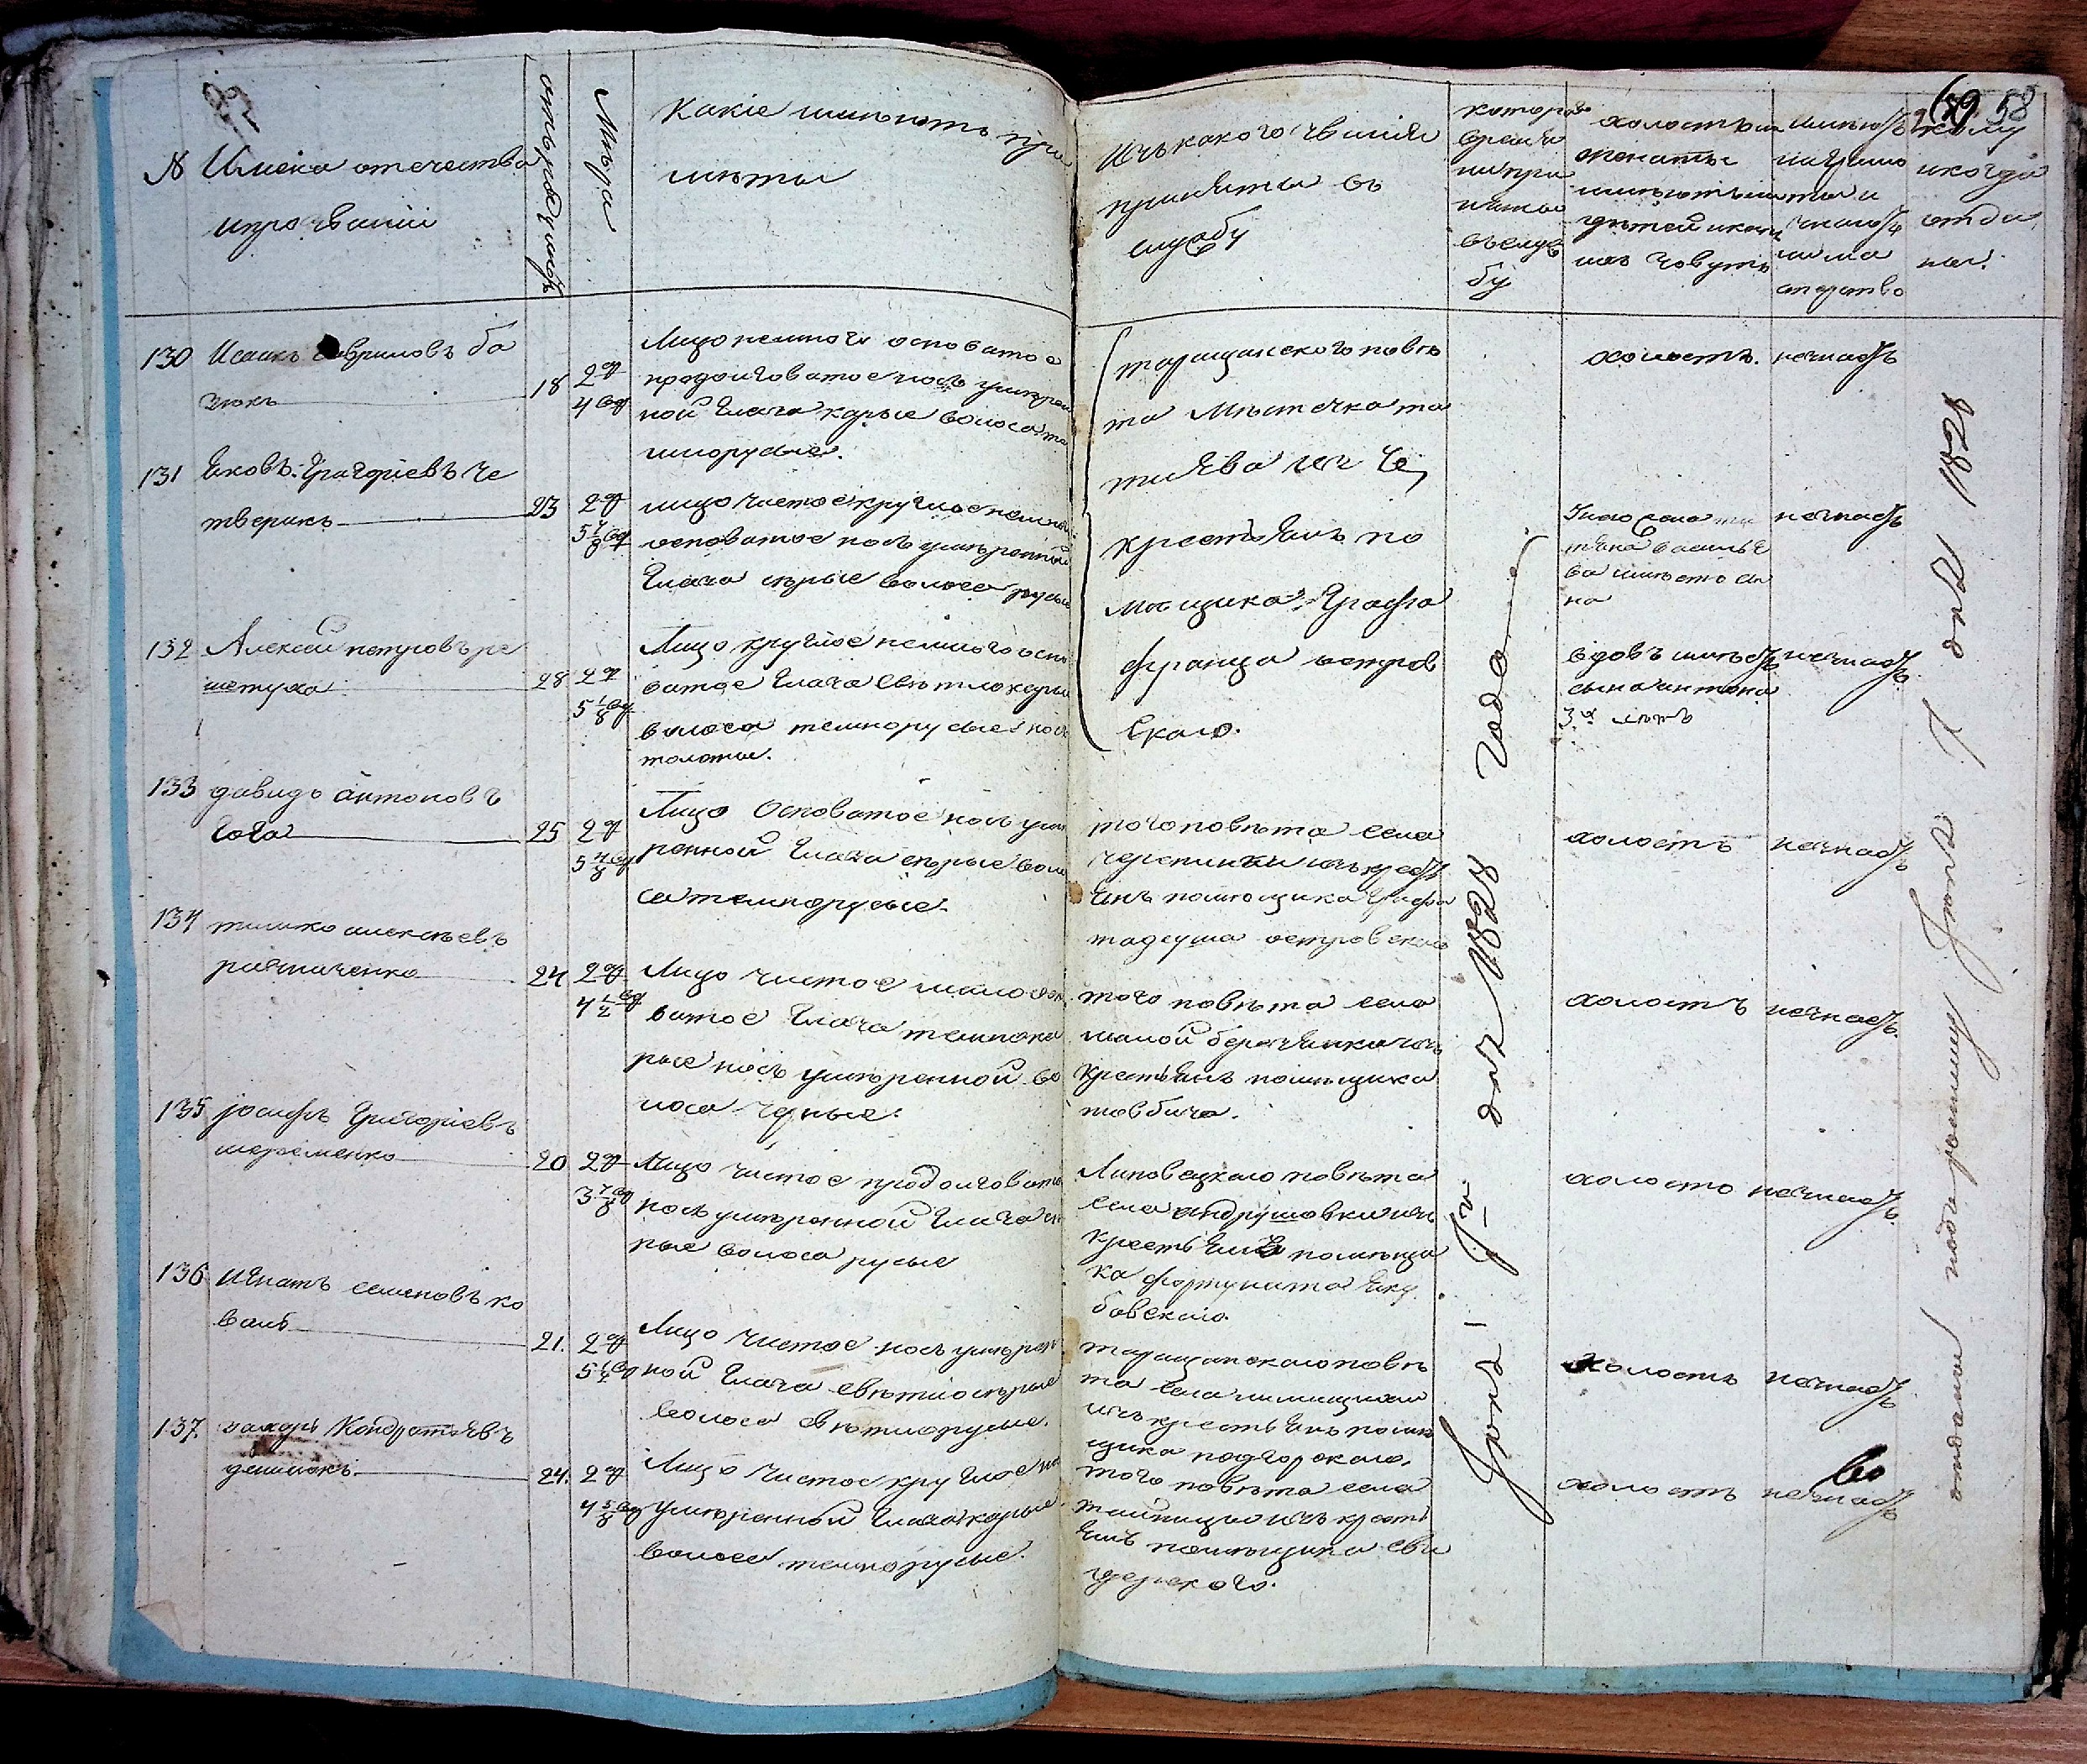 58
№ Имена отечества
и прозваніи
отъ роду имѣ
Мѣра
Какіе имѣютъ при
мѣты
Изъ какого званія
приняты въ
службу
котора
время
ни при
няты
въ служ
бу
холостыи
женаты
имѣютъ ли
дѣтей и какъ
ихъ зовутъ
на грамо
ты и
знаютъ
ли ма
стерство
кому
и когда
отда
ны.
130 Исаакъ Гавриловъ ба
зюкъ
18
2 ар
4 вер
Лицо немного осповатое
продолговатое носъ умѣрен
ной глаза карые волоса те
мнорусые.
таращанскаго повѣ
та Мѣстечка та
тіева изъ
крестьянъ по
мѣщика Графа
Франца остров
скаго.
холостъ.
незнаетъ
131 Яковъ Григоріевъ Че
тверикъ
23
2 ар
5 7/8 вер
лицо чистое круглое немного
осповатое носъ умѣренный
глаза сѣрые волоса русые
имѣетъ сы
на
незнаетъ
132 Алексей петровъ ре
шетуха
28
2 ар
5 1/8 вер
Лицо круглое немного оспо
ватое глаза свѣтлокарые
волоса темнорусые носъ
толстый.
вдовъ имѣетъ
сына антона
3х лѣтъ
незнаетъ
133 давидъ антоновъ
гога
25
2 ар
5 7/8 вер
Лицо Осповатое носъ умѣ
ренной глаза сѣрые воло
са темнорусые.
того повѣта села
черепинки изъ крест
янъ помѣщика Графа
тадеуша островскаго
холостъ
незнаетъ
134 тимко алексѣевъ
24
2 ар
4 1/2 вер
Лицо чистое мало оспо
ватое глаза темнока
рые носъ умѣренной во
лоса черные.
того повѣта села
малой березянки изъ
крестьянъ помѣщика
товбича.
холостъ
незнаетъ.
135 Іосифъ Григоріевъ
шереметко
20
2 ар
3 7/8 вер
Лицо чистое продолговатое
носъ умѣренной глаза сѣ
рые волоса русые
Липовецкаго повѣта
села андрушовки изъ
крестьянъ помѣщи
ка фортуната Яку
бовскаго.
холостъ
незнаетъ
136 игнатъ семеновъ ко
валь
21.
2 ар
5 1/4 вер
Лицо чистое носъ умѣрен
ной глаза свѣтлосѣрые
волоса свѣтлорусые.
таращанскаго повѣ
та села
изъ крестьянъ помѣ
щика подгорскаго.
холостъ
незнаетъ
137. захаръ Кондратьевъ
демчокъ.
24.
2 ар
4 5/8 вер
Лицо чистое круглое но
умѣренной глаза карые
волоса темнорусые.
того повѣта села
тайницы изъ кресть
янъ помѣщика сви
дерского.
холостъ
незнаетъ
60
Іюня 1го дня 1828 года
отданы Іюня 7 дня 1828